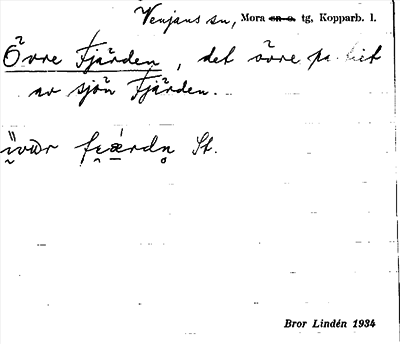 Venjans sn, Mora sn o. tg, Kopparb. l.
Övre Fjärden, det övre partiet
av sjön Fjärden.
St.
Bror Lindén 1934